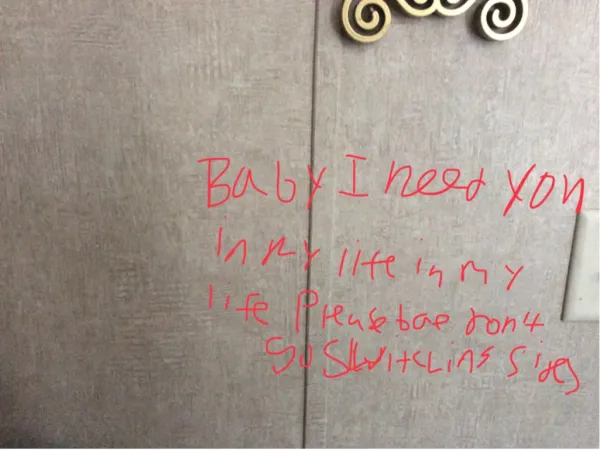 Baby I need you
in my life in my
life Please bae don't
go switching sides